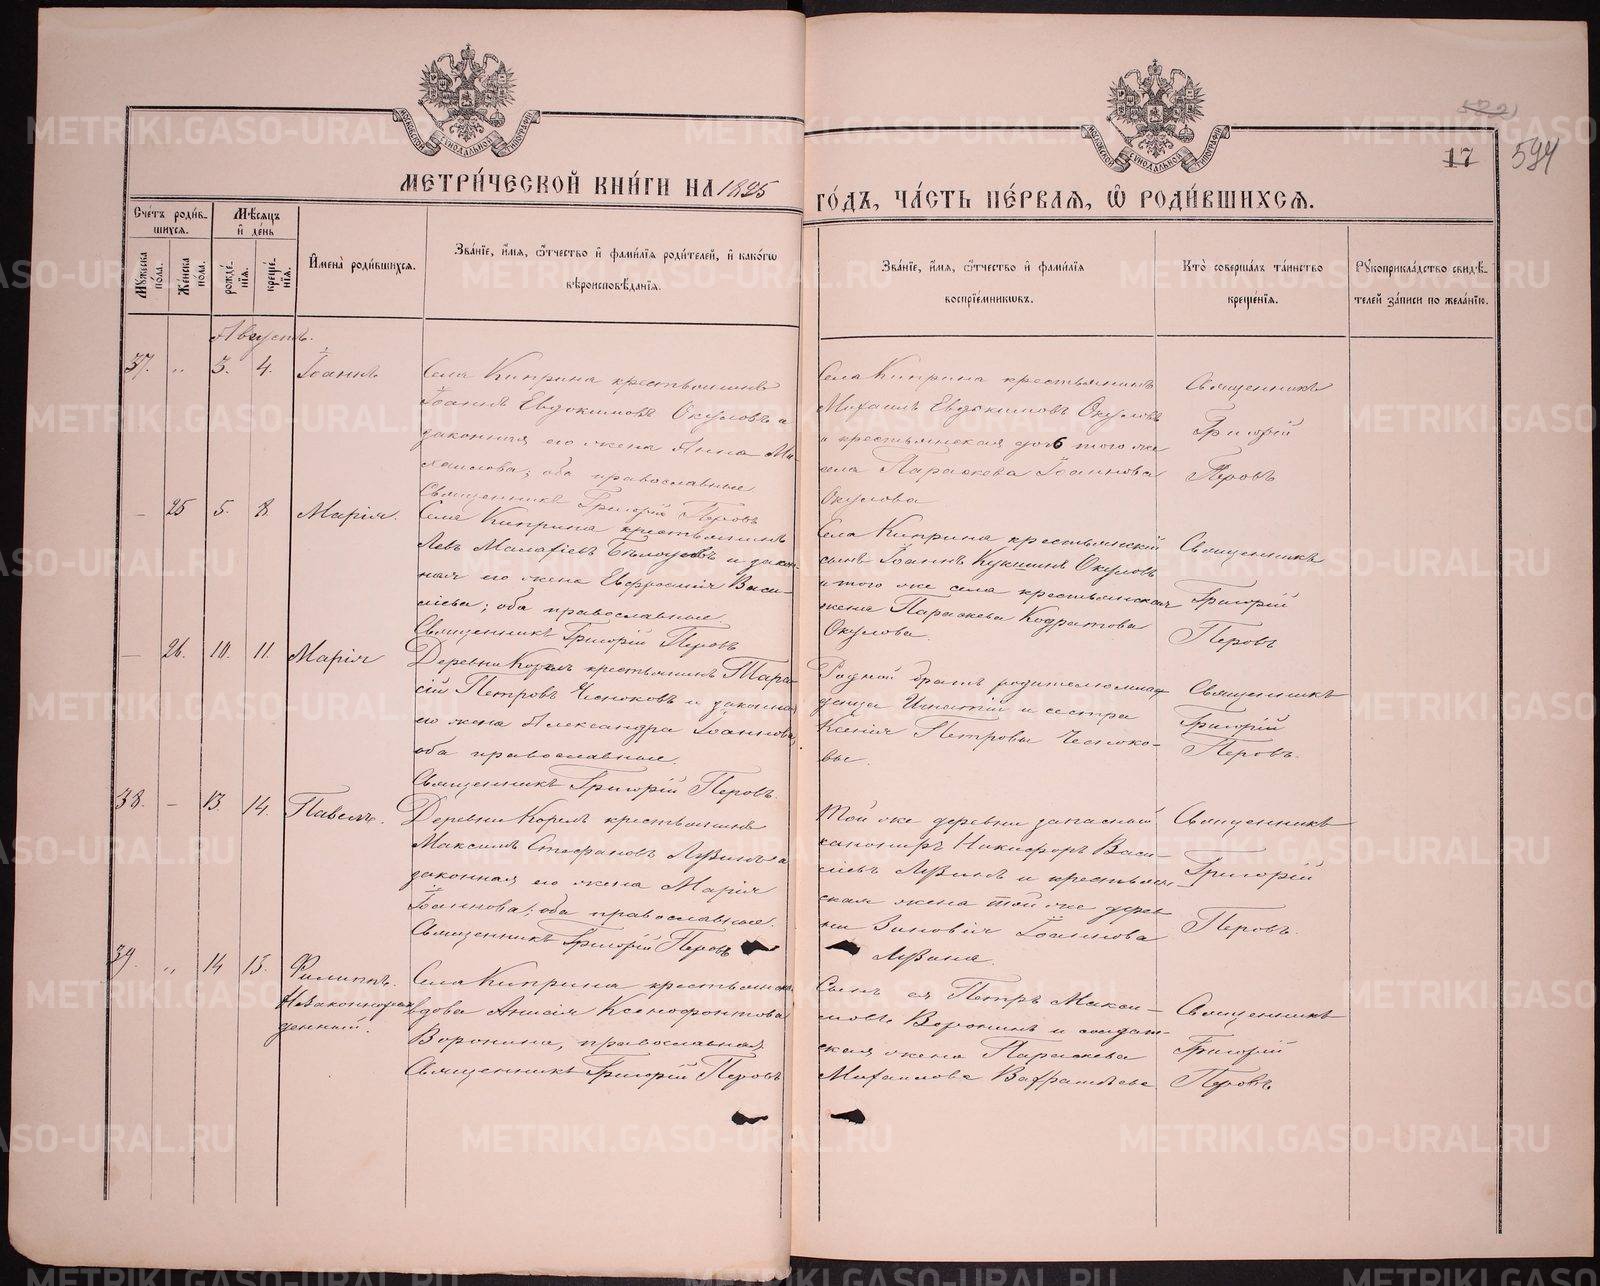 МЕТРИ́ЧЕСКОЙ КНИ́ГИ НА 1895 ГО́ДЪ, ЧА́СТЬ ПЕ́РВАЯ, Ѿ РОДИ́ВШИХСЯ.
17 594
МОСКОВСКОЙ СѴНОДАЛЬНОЙ ТИПОГРАФІИ
МОСКОВСКОЙ СѴНОДАЛЬНОЙ ТИПОГРАФІИ
Сче́тъ роди́в-
шихся.
Мѣ́сяцъ
и҆ де́нь
Мꙋ́жеска
по́ла.
Же́нска
по́ла.
рожде́-
нїя.
креще́-
нїя.
И҆мена̀ роди́вшихся.
Зва́нїе, и҆́мя, ѻ҆́тчество и҆ фами́лїя роди́телей, и҆ како́гѡ
вѣроисповѣ́данїя.
Зва́нїе, и҆́мя, ѻ҆́тчество и҆ фами́лїя
воспрїе́мникѡвъ.
Кто̀ соверша́лъ та́инство
креще́нїя.
Рꙋкоприкла́дство свидѣ́-
телей за́писи по жела́нїю.
Августъ.
37. „ 3. 4. Іоаннъ
Села Киприна крестьянинъ
Іоаннъ Евдокимовъ Окуловъ и
законная его жена Анна Ми-
хаилова; оба православные
Священникъ Григорій Перовъ
Села Киприна крестьянинъ
Михаилъ Евдокимовъ Окуловъ
и крестьянская дочь того же
села Параскева Іоаннова
Окулова
Священникъ
Григорій
Перовъ
– 25 5. 8. Марія.
Села Киприна крестьянинъ
Левъ Малафіевъ Бѣлоусовъ и закон-
ная его жена Евфросинія Васи-
ліева; оба православные.
Священникъ Григорій Перовъ
Села Киприна крестьянскій
сынъ Іоаннъ Окуловъ
и того же села крестьянская
жена Параскева Кодратова
Окулова.
Священникъ
Григорій
Перовъ
– 26. 10. 11. Марія
Деревни Корелъ крестьянинъ Тара-
сій Петровъ Чесноковъ и законная
его жена Александра Іоаннова,
оба православные.
Священникъ Григорій Перовъ.
Родной братъ родителю млад-
енца Игнатій и сестра
Ксенія Петровы Чесноко-
вы.
Священникъ
Григорій
Перовъ.
38. – 13. 14. Павелъ.
Деревни Корелъ крестьянинъ
Максимъ Стефановъ Лузинъ и
законная его жена Марія
Іоаннова; оба православные.
Священникъ Григорій Перовъ
Той же деревни запасный
канониръ Никифоръ Васи-
ліевъ Лузинъ и крестьян-
ская жена той же дерев-
ни Зиновія Іоаннова
Лузина.
Священникъ
Григорій
Перовъ.
39. „ 14 15. Филиппъ.
Незаконнорож-
денный.
Села Киприна крестьянская
вдова Анисія Ксенофонтова
Воронина, православная
Священникъ Григорій Перовъ
Сынъ ея Петръ Макси-
мовъ Воронинъ и солдат-
ская жена Параскева
Михаилова
Священникъ
Григорій
Перовъ.
METRIKI.GASO-URAL.RU